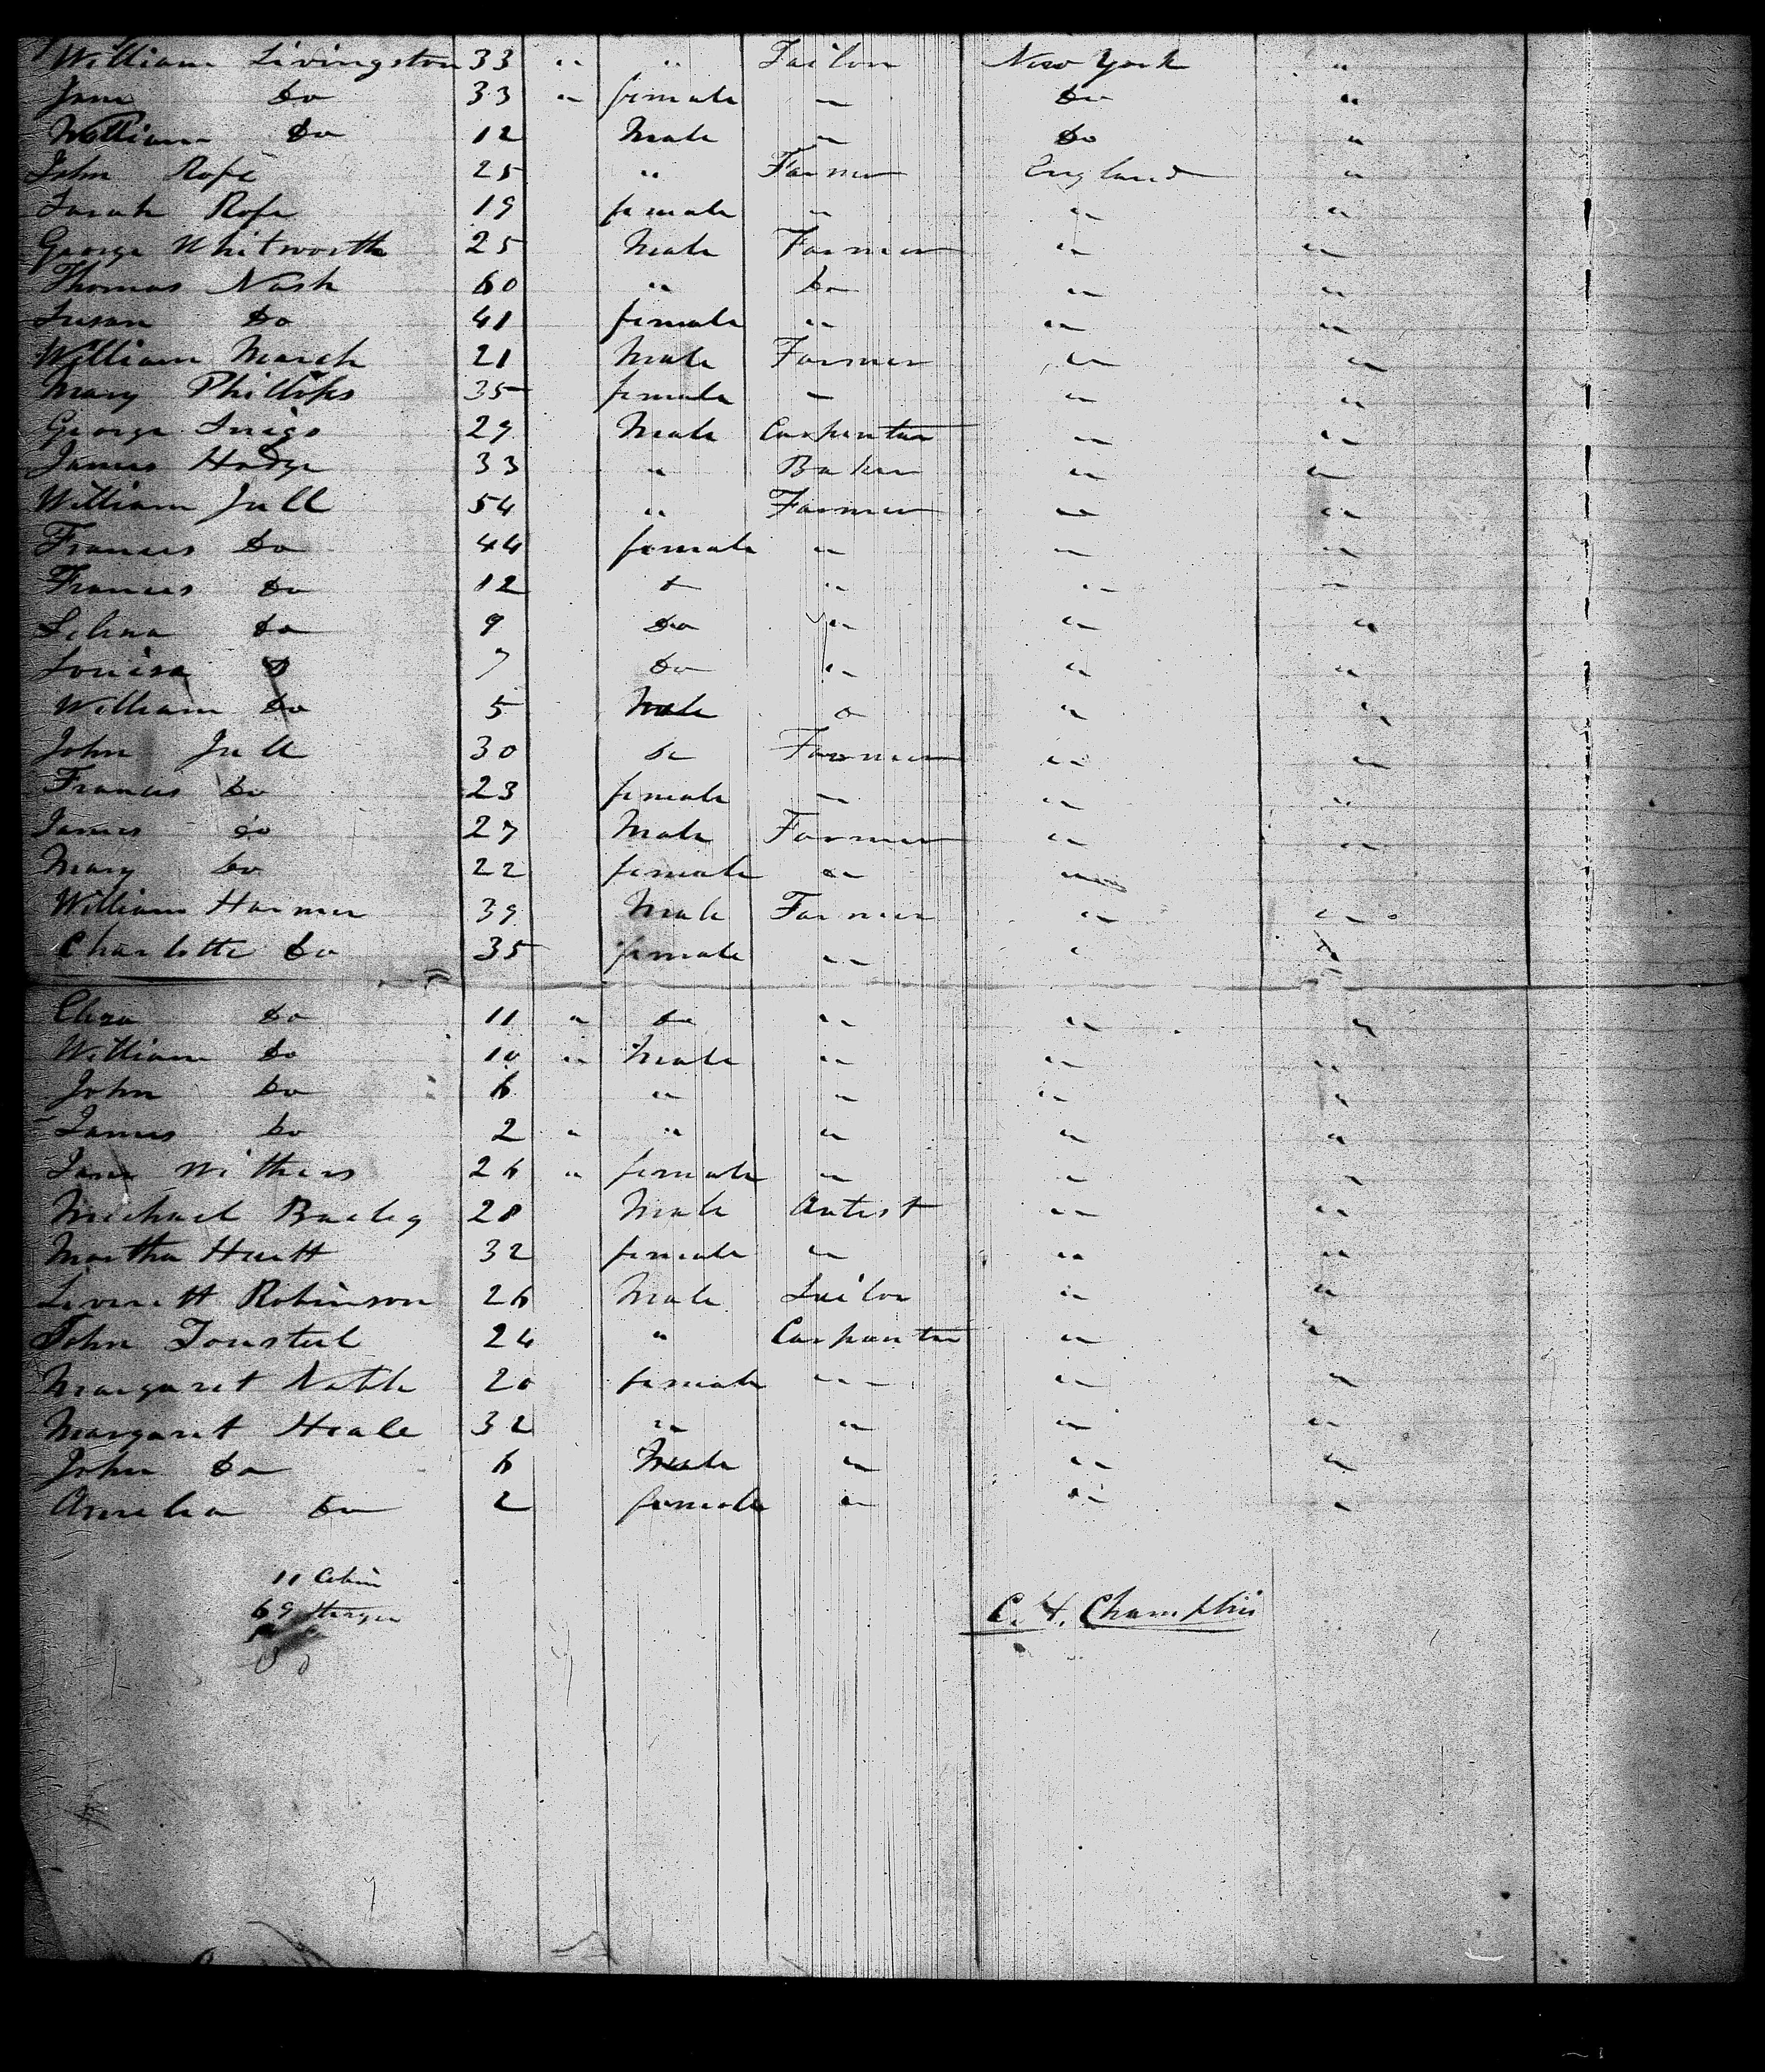 William Livingston 33 " " Tailor New York "
Jane Do 33 " female " Do "
William Do 12 Male " Do "
John Rofe 25 " Farmer England "
Sarah Rofe 19 female " " "
George Whitworth 25 Male Farmer " "
Thomas Nash 60 " Do " "
Susan Do 41 female " " "
William March 21 Male Farmer " "
Mary Phillips 35 female " " "
George 29 Male Carpenter " "
James Hodge 33 " Baker " "
William Jull 54 " Farmer " "
Frances Do 44 female " " "
Frances Do 12 " " " "
Selina Do 9 Do " " "
Louisa D 7 Do " " "
William Do 5 Male " " "
John Jull 30 Do Farmer " "
Frances Do 23 female " " "
James Do 27 Male Farmer " "
Mary Do 22 female " " "
William Harmer 39 Male Farmer " "
Charlotte Do 35 female " "
Eliza Do 11 " Do " " "
William Do 10 " Male " " "
John Do 6 " " " "
James Do 2 " " " " "
Jane Withers 26 " female " " "
Michael Bailey 28 Male Artist " "
Martha Huett 32 female " " "
Robinson 26 Male Sailor " "
John 24 " Carpenter " "
Margaret 20 female " " "
Margaret Heale 32 " " " "
John Do 6 Male " " "
Amelia Do 2 female " " "
11 Cabin
69 Sterge
C. H. Champlin